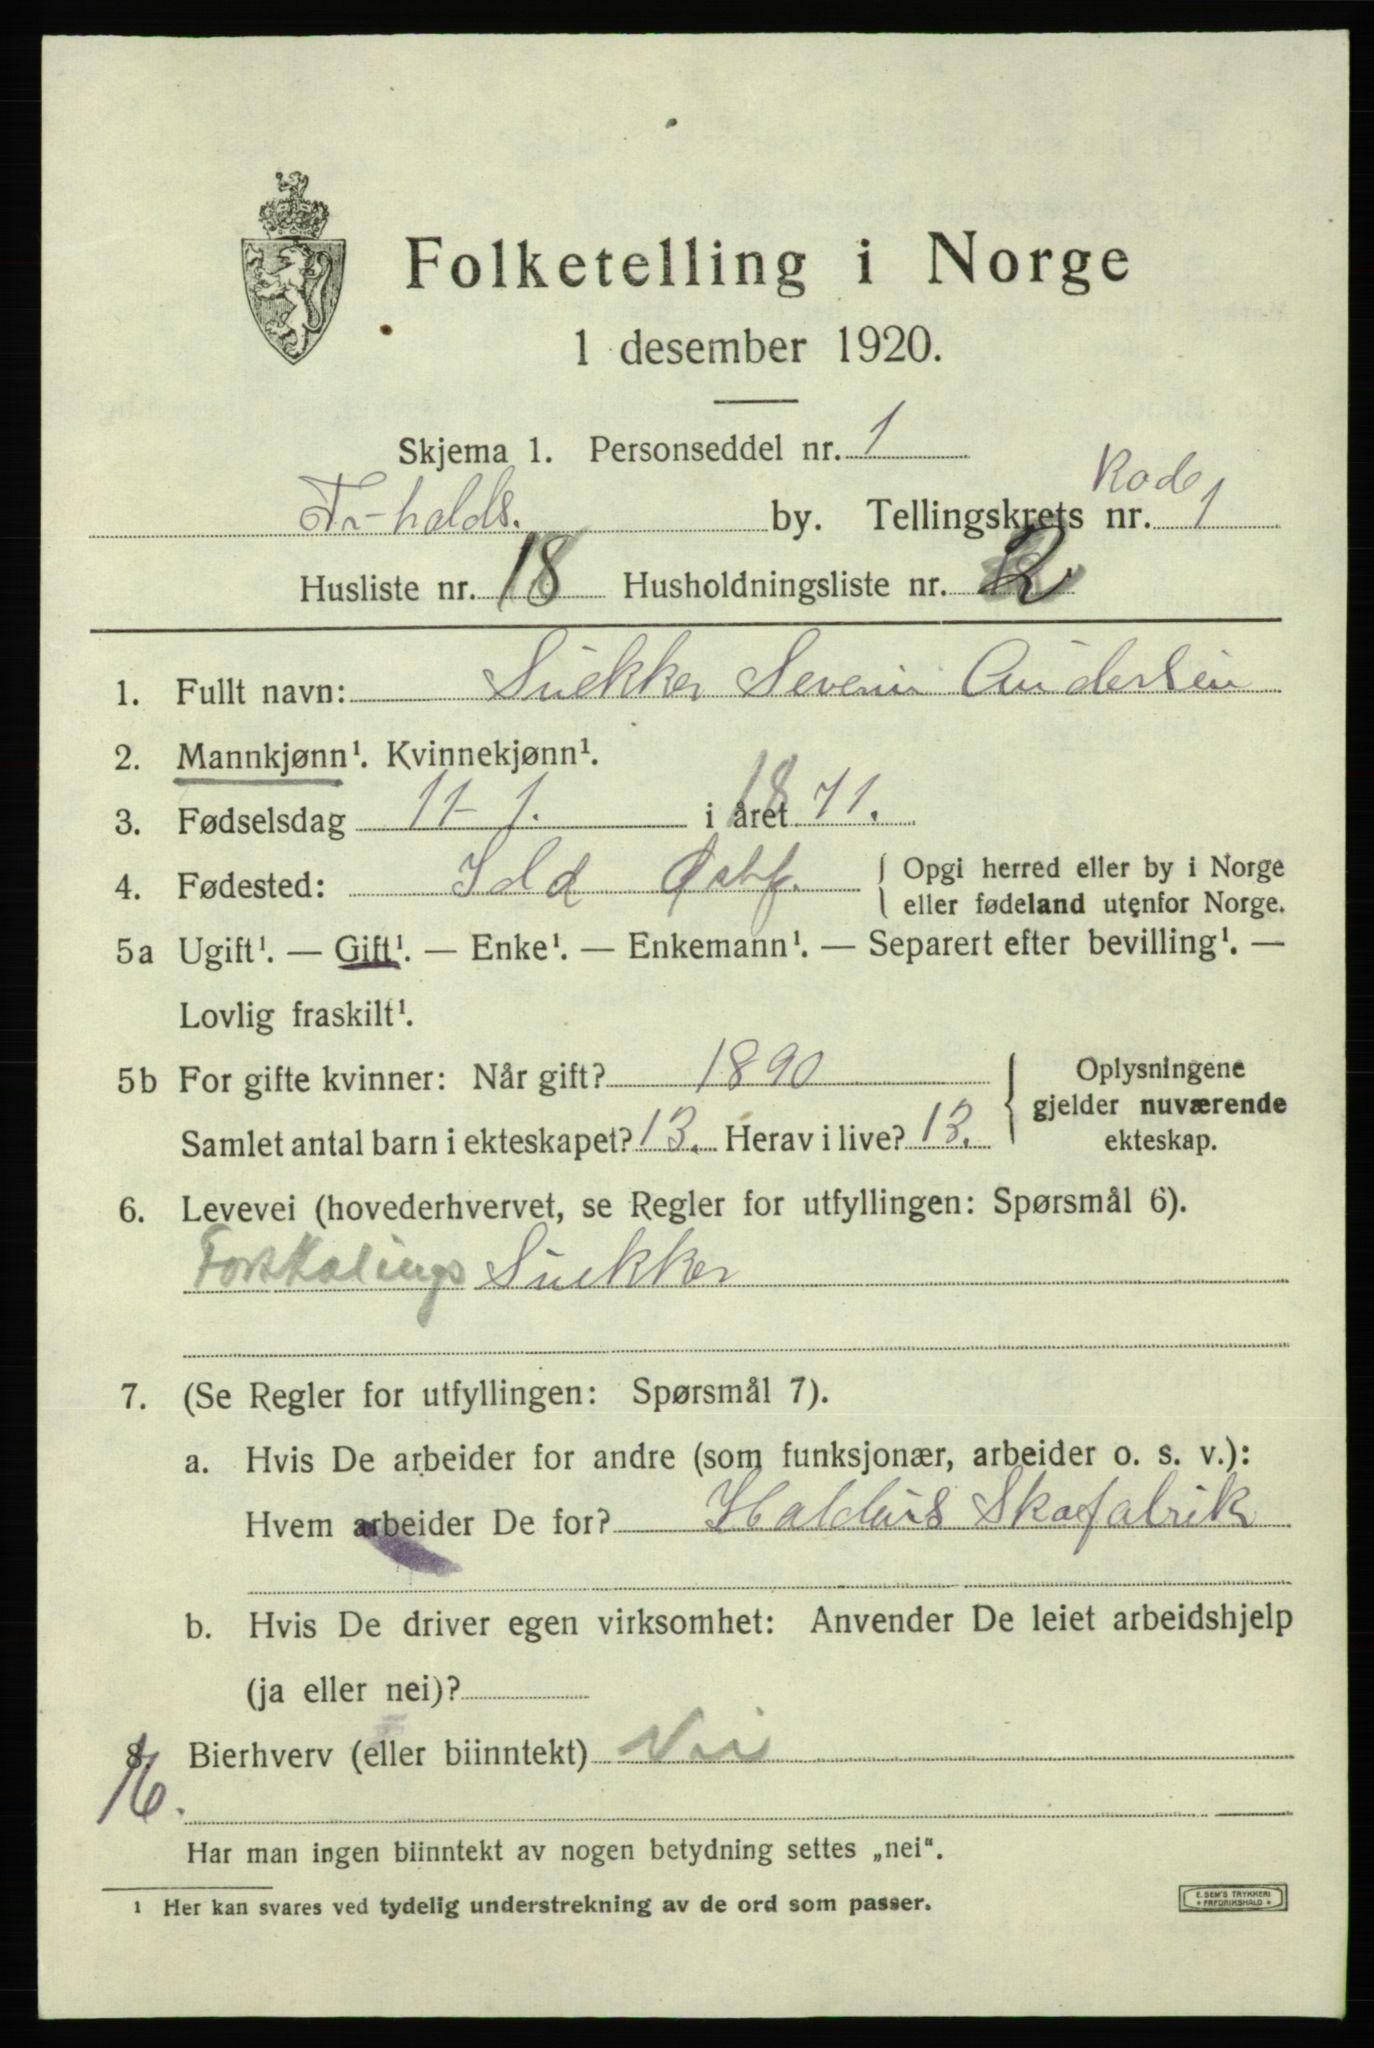 Folketelling i Norge
1 desember 1920.
Skjema 1. Personseddel nr. 1
Fr-halds. by. Tellingskrets nr. Rode 1
Husliste nr. 18 Husholdningsliste nr. 2
1. Fullt navn: Snekker Severin Andersen
2. Mannkjønn¹. Kvinnekjønn¹.
3. Fødselsdag 11-1. i året 1871.
4. Fødested: Idd Østf. { Opgi herred eller by i Norge
eller fødeland utenfor Norge.
5a Ugift¹. — Gift¹. — Enke¹. — Enkemann¹. — Separert efter bevilling¹. —
Lovlig fraskilt¹.
5b For gifte kvinner: Når gift? 1890
Samlet antal barn i ekteskapet? 13. Herav i live? 13.
Oplysningene
gjelder nuværende
ekteskap.
6. Levevei (hovederhvervet, se Regler for utfyllingen: Spørsmål 6).
Snekker
7. (Se Regler for utfyllingen: Spørsmål 7).
a. Hvis De arbeider for andre (som funksjonær, arbeider o. s. v.):
Hvem arbeider De for? Haldens Skofabrik
b. Hvis De driver egen virksomhet: Anvender De leiet arbeidshjelp
(ja eller nei)?
8. Bierhverv (eller biinntekt) Nei
16.
Har man ingen biinntekt av nogen betydning settes „nei“.
¹ Her kan svares ved tydelig understrekning av de ord som passer.
E. SEM'S TRYKKERI
FREDRIKSHALD